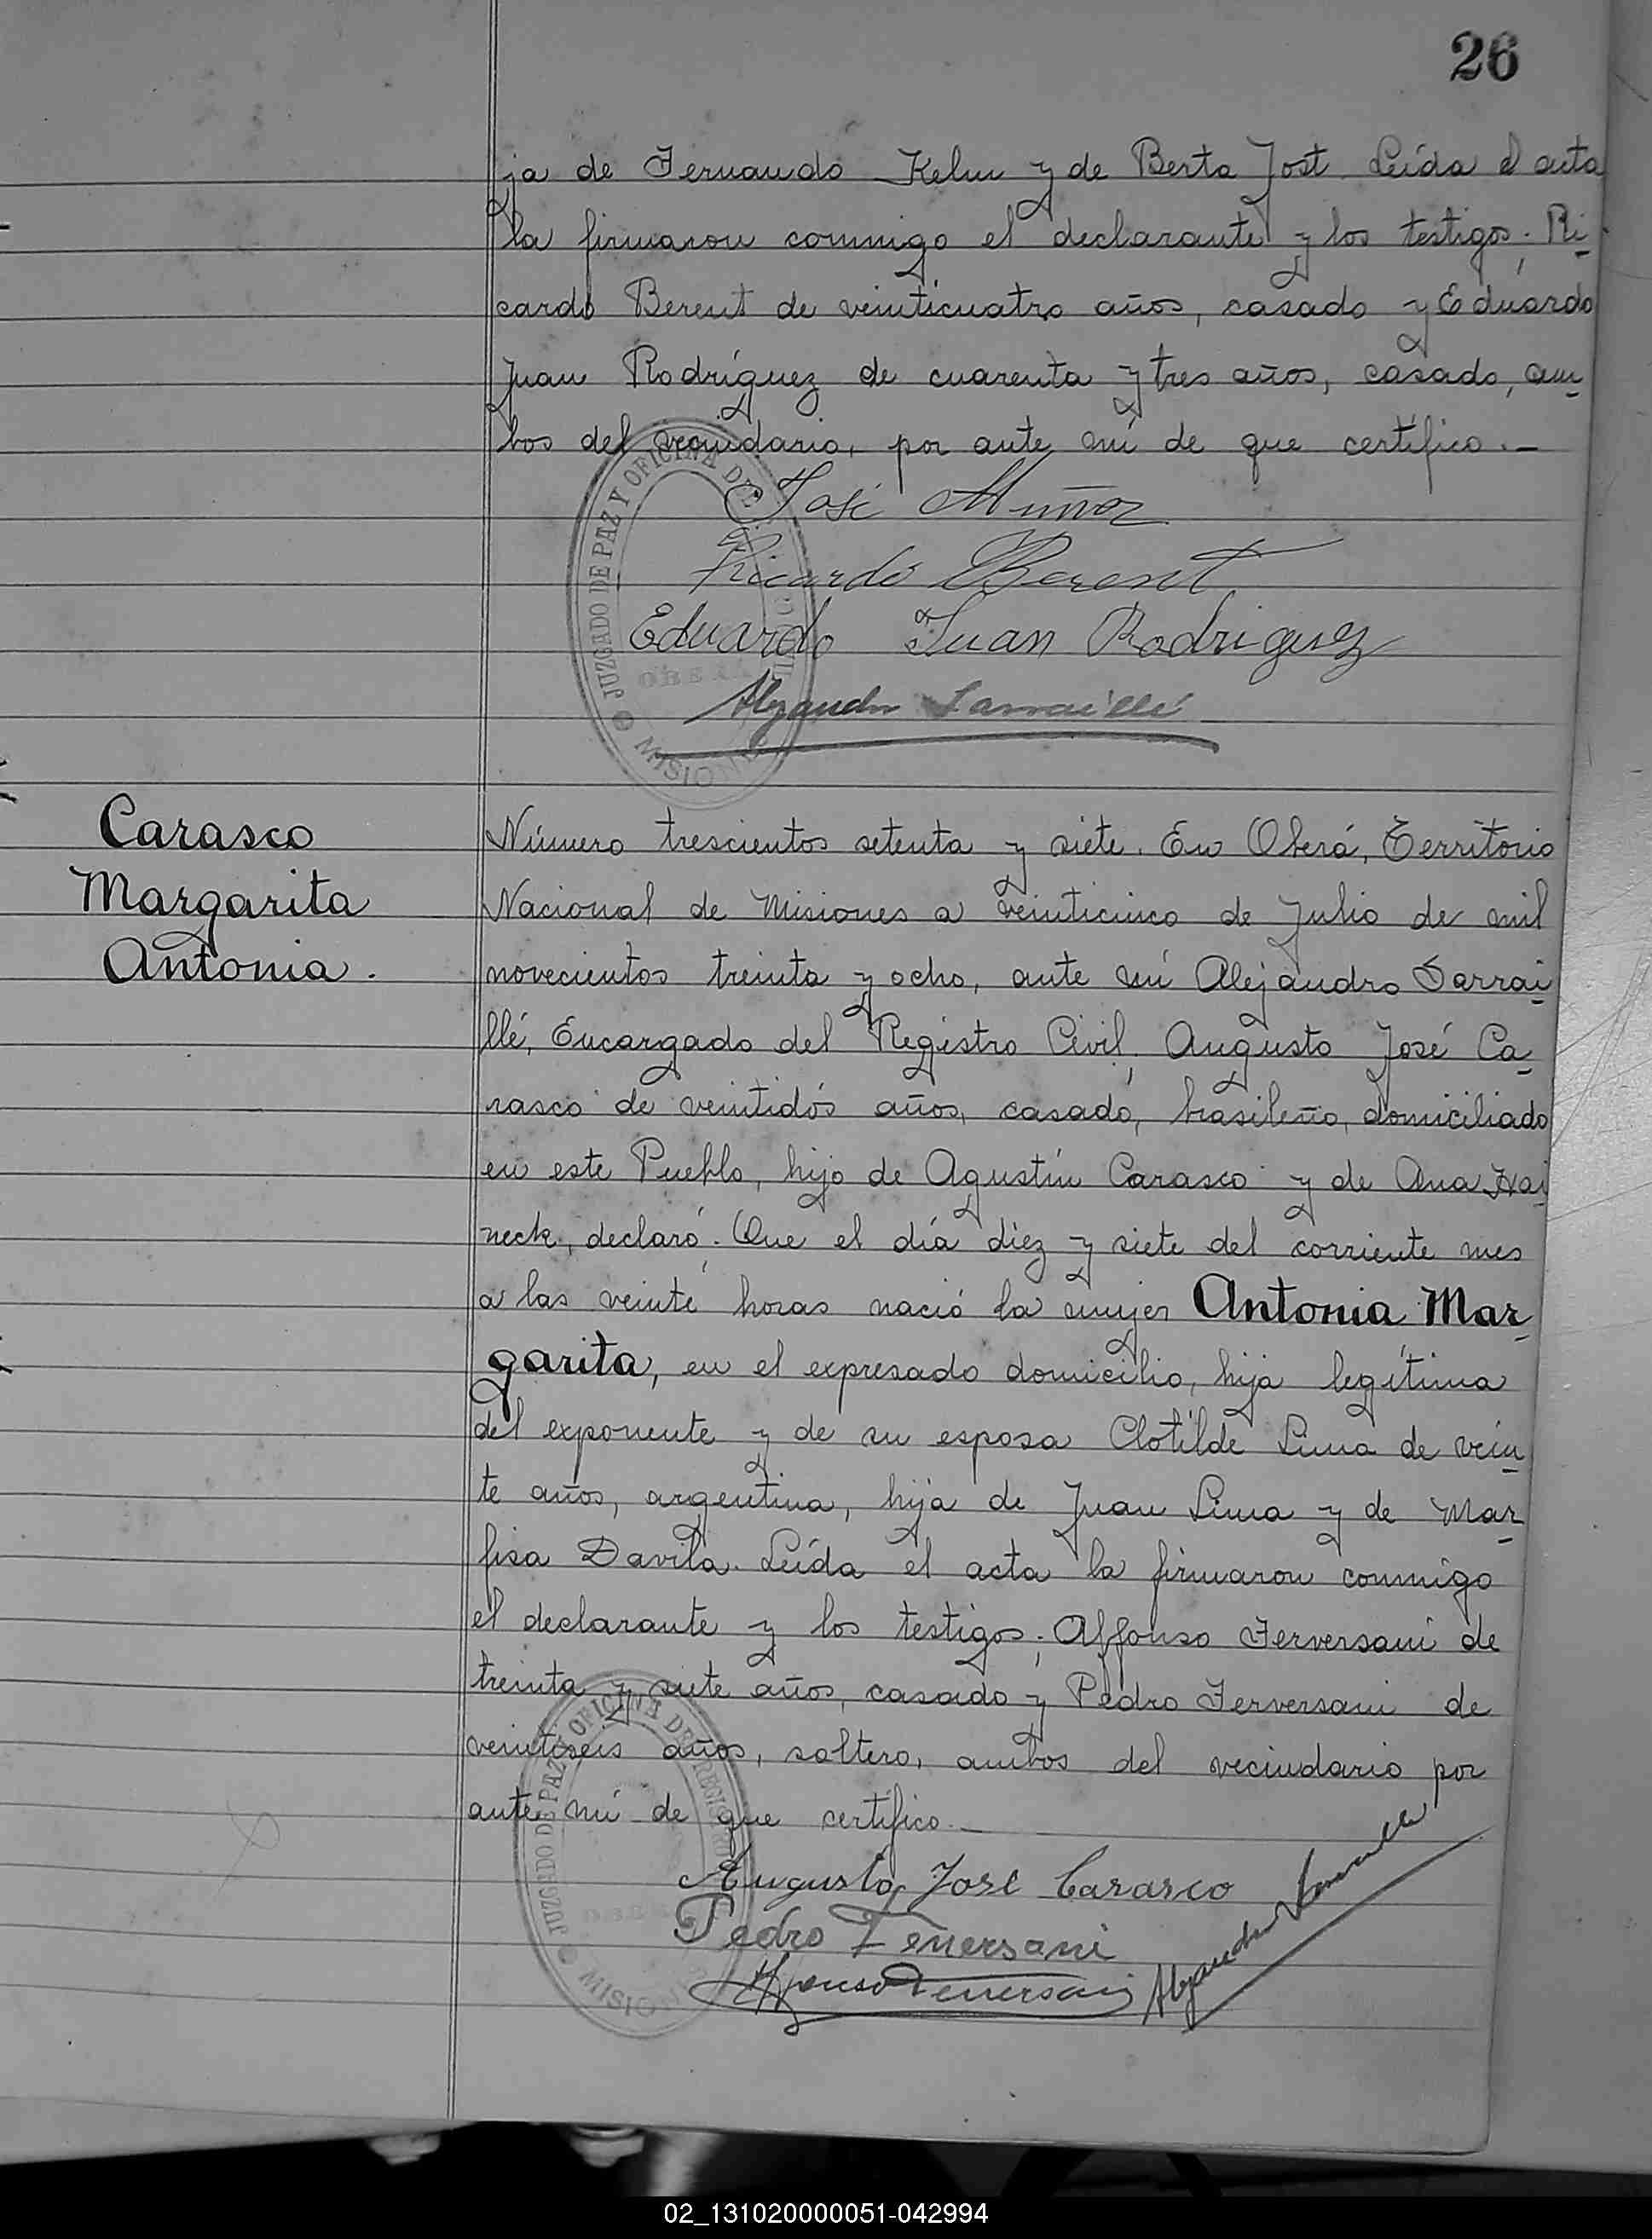 26
ja de Fernando Kelm y de Berta Jost. Leída el acta
la firmaron conmigo el declarante y los testigos: Ri-
cardo Berent de veinticuatro años, casado y Eduardo
Juan Rodríguez de cuarenta y tres años, casado, am-
bos del vecindario, por ante mí de que certifico.—
José Muñoz
Ricardo Berent
Eduardo Juan Rodriguez
Alejandro
JUZGADO DE PAZ Y OFICINA DEL
MISIONES
Carasco
Margarita
Antonia.
Número trescientos setenta y siete. En Oberá, Territorio
Nacional de Misiones a veinticinco de Julio de mil
novecientos treinta y ocho, ante mí Alejandro Sarrai-
llé, Encargado del Registro Civil, Augusto José Ca-
rasco de veintidós años, casado, brasileño, domiciliado
en este Pueblo, hijo de Agustín Carasco y de Ana Hai
neck, declaró: Que el día diez y siete del corriente mes
a las veinte horas nació la mujer Antonia Mar-
garita, en el expresado domicilio, hija legítima
del exponente y de su esposa Clotilde Lima de vein-
te años, argentina, hija de Juan Lima y de Mar-
fisa Davila. Leída el acta la firmaron conmigo
el declarante y los testigos: Affonso Ferversani de
treinta y siete años, casado y Pedro Ferversani de
veintiseis años, soltero, ambos del vecindario por
ante mí de que certifico.—
Augusto José Carasco
Pedro
Affonso
Alejandro
JUZGADO DE PAZ Y OFICINA DEL REGISTRO
MISIONES
02_131020000051-042994